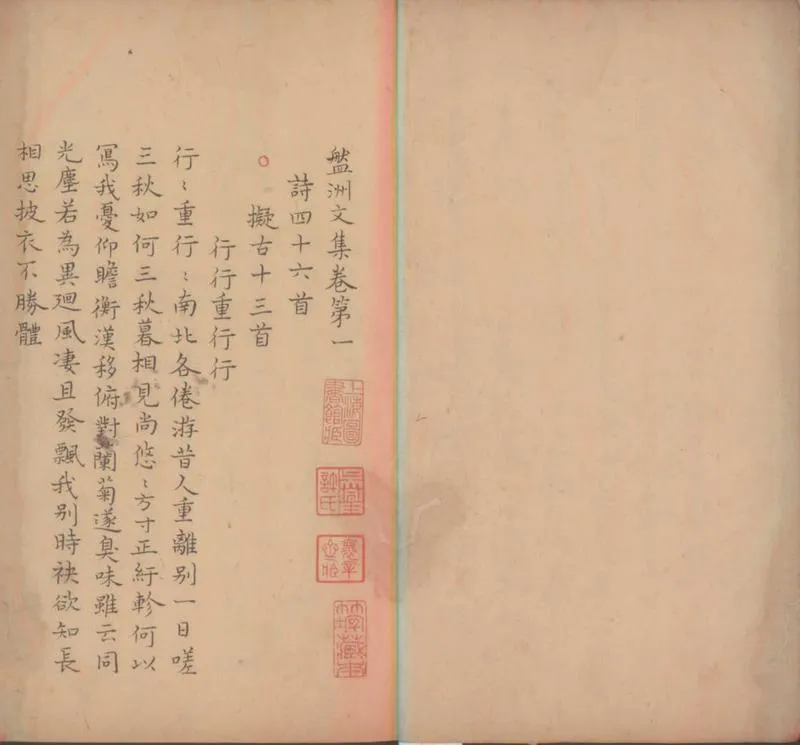 盤洲文集卷第一
詩四十六首
擬古十三首
行行重行行
行〻重行〻南北各倦游昔人重離別一日嗟
三秋如何三秋暮相見尚悠〻方寸正紆軫何以
寫我憂仰瞻衡漢移俯對蘭菊遂臭味雖云同
光塵若為異廻風凄且發飄我別時袂欲知長
相思披衣不勝體
上海圖書館藏